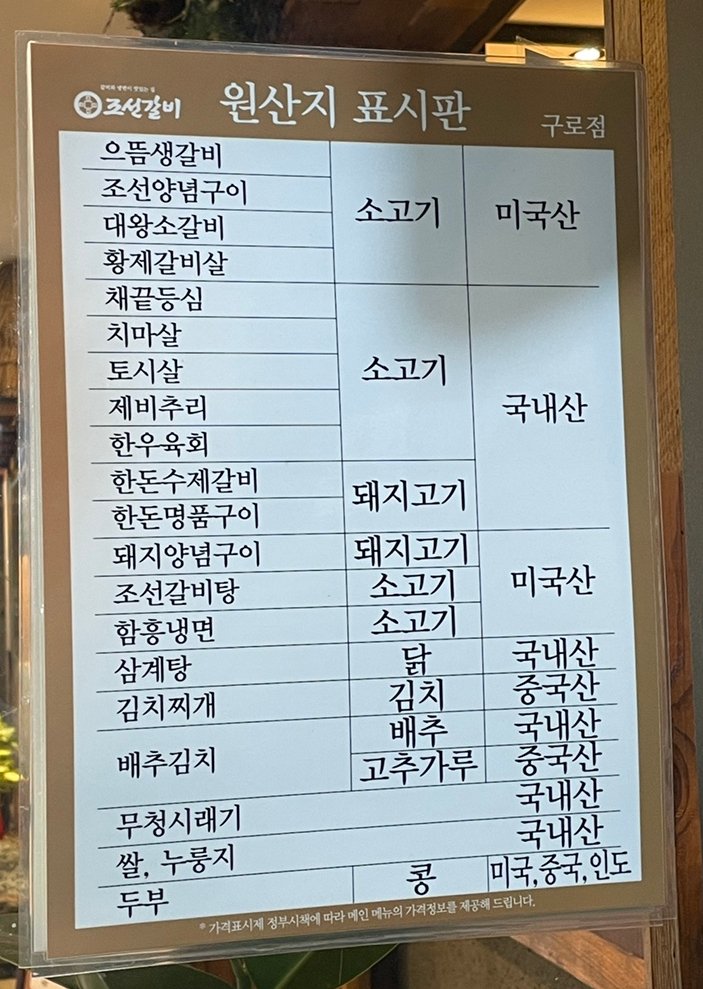 갈비와 냉면이 맛있는 집
조선갈비
원산지 표시판
구로점
으뜸생갈비
조선양념구이
대왕소갈비
황제갈비살
소고기
미국산
채끝등심
치마살
토시살
제비추리
한우육회
소고기
국내산
한돈수제갈비
한돈명품구이
돼지고기
돼지양념구이 돼지고기
조선갈비탕 소고기
함흥냉면 소고기
미국산
삼계탕 닭 국내산
김치찌개 김치 중국산
배추김치
배추 국내산
고추가루 중국산
무청시래기 국내산
쌀, 누룽지 국내산
두부 콩 미국,중국,인도
* 가격표시제 정부시책에 따라 메인 메뉴의 가격정보를 제공해 드립니다.